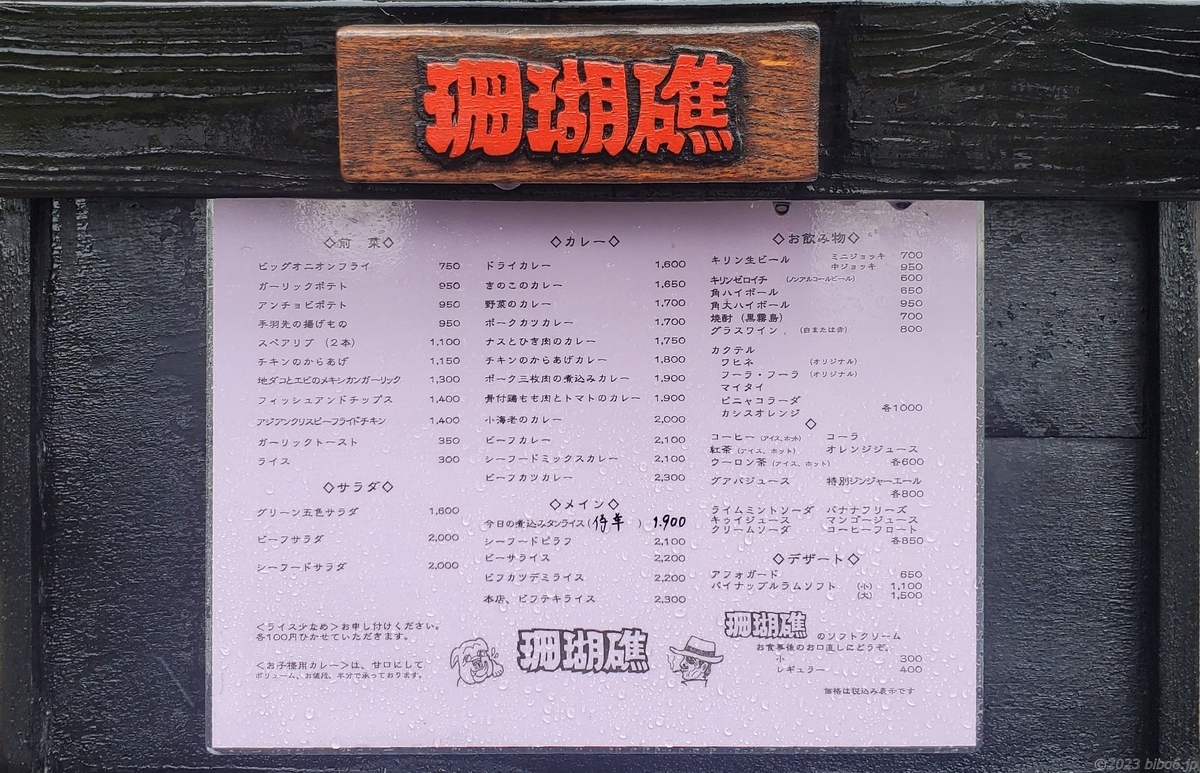 珊瑚礁
◇前 菜◇
ビッグオニオンフライ 750
ガーリックポテト 950
アンチョビポテト 950
手羽先の揚げもの 950
スペアリブ (2本) 1,100
チキンのからあげ 1,150
地ダコとエビのメキシカンガーリック 1,300
フィッシュアンドチップス 1,400
アジアンクリスピーフライドチキン 1,400
ガーリックトースト 350
ライス 300
◇サラダ◇
グリーン五色サラダ 1,600
ビーフサラダ 2,000
シーフードサラダ 2,000
<ライス少なめ>お申し付けください。
各100円ひかせていただきます。
<お子様用カレー>は、甘口にして
ボリューム、お値段、半分で承っております。
◇カレー◇
ドライカレー 1,600
きのこのカレー 1,650
野菜のカレー 1,700
ポークカツカレー 1,700
ナスとひき肉のカレー 1,750
チキンのからあげカレー 1,800
ポーク三枚肉の煮込みカレー 1,900
骨付鶏もも肉とトマトのカレー 1,900
小海老のカレー 2,000
ビーフカレー 2,100
シーフードミックスカレー 2,100
ビーフカツカレー 2,300
◇メイン◇
今日の煮込みタンライス( ) 1.900
シーフードピラフ 2,100
ビーサライス 2,200
ビフカツデミライス 2,200
本店、ビフテキライス 2,300
珊瑚礁
◇お飲み物◇
キリン生ビール ミニジョッキ 700
中ジョッキ 950
キリンゼロイチ (ノンアルコールビール) 600
角ハイボール 650
角大ハイボール 950
焼酎 (黒霧島) 700
グラスワイン (白または赤) 800
カクテル
ワヒネ (オリジナル)
フーラ・フーラ (オリジナル)
マイタイ
ピニャコラーダ
カシスオレンジ 各1000
◇
コーヒー (アイス、ホット) コーラ
紅茶 (アイス、ホット) オレンジジュース
ウーロン茶 (アイス、ホット) 各600
グアバジュース 特別ジンジャーエール
各800
ライムミントソーダ バナナフリーズ
キゥイジュース マンゴージュース
クリームソーダ コーヒーフロート
各850
◇デザート◇
アフォガード 650
パイナップルラムソフト (小) 1,100
(大) 1,500
珊瑚礁 のソフトクリーム
お食事後のお口直しにどうぞ。
小 300
レギュラー 400
価格は税込み表示です
©2023 bibo6.jp